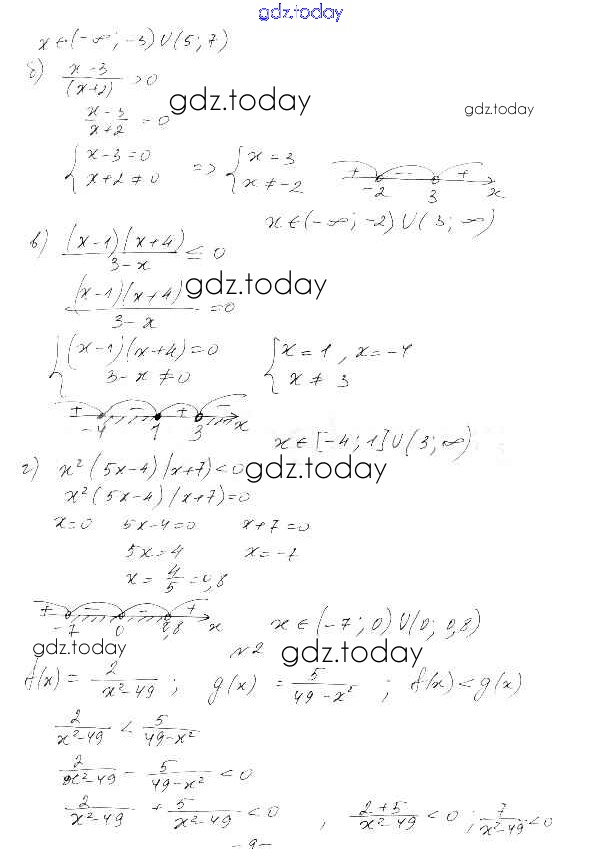 gdz.today
x ∈ (-∞; -3) ∪ (5; 7)
б) (x-3)/(x+2) > 0
gdz.today
gdz.today
(x-3)/(x+2) = 0
{ x-3=0 => { x=3
x+2≠0 x≠-2
+ - +
-2 3 x
x ∈ (-∞; -2) ∪ (3; ∞)
в) (x-1)(x+4)/(3-x) ≤ 0
gdz.today
(x-1)(x+4)/(3-x) = 0
{ (x-1)(x+4)=0 { x=1, x=-4
3-x≠0 x≠3
+ - + -
-4 1 3 x
x ∈ [-4; 1] ∪ (3; ∞)
г) x²(5x-4)(x+7)<0
gdz.today
x²(5x-4)(x+7)=0
x=0 5x-4=0 x+7=0
5x=4 x=-7
x = 4/5 = 0,8
+ - - +
-7 0 0,8 x
x ∈ (-7; 0) ∪ (0; 0,8)
gdz.today
№2
gdz.today
f(x) = 2/(x²-49); g(x) = 5/(49-x²); f(x)<g(x)
2/(x²-49) < 5/(49-x²)
2/(x²-49) - 5/(49-x²) < 0
2/(x²-49) + 5/(x²-49) < 0, (2+5)/(x²-49) < 0; 7/(x²-49) < 0
-9-